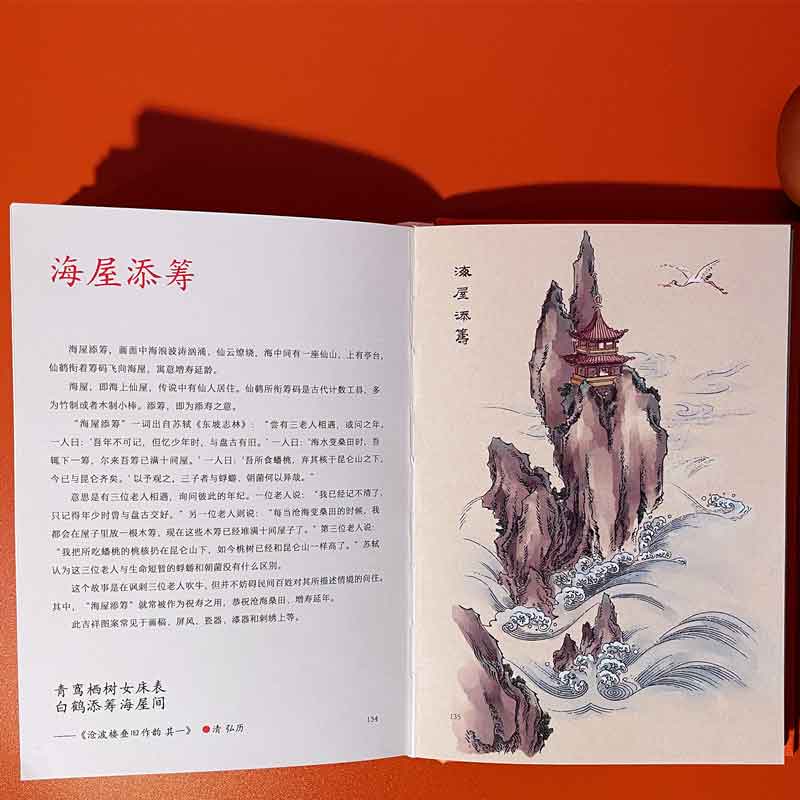 海屋添筹
海屋添筹,画面中海浪波涛汹涌,仙云缭绕,海中间有一座仙山,上有亭台,
仙鹤衔着筹码飞向海屋,寓意增寿延龄。
海屋,即海上仙屋,传说中有仙人居住。仙鹤所衔筹码是古代计数工具,多
为竹制或者木制小棒。添筹,即为添寿之意。
“海屋添筹”一词出自苏轼《东坡志林》:“尝有三老人相遇,或问之年。
一人曰:‘吾年不可记,但忆少年时,与盘古有旧。’一人曰:‘海水变桑田时,吾
辄下一筹,尔来吾筹已满十间屋。’一人曰:‘吾所食蟠桃,弃其核于昆仑山之下,
今已与昆仑齐矣。’以予观之,三子者与蜉蝣、朝菌何以异哉。”
意思是有三位老人相遇,询问彼此的年纪。一位老人说:“我已经记不清了,
只记得年少时曾与盘古交好。”另一位老人则说:“每当沧海变桑田的时候,我
都会在屋子里放一根木筹,现在这些木筹已经堆满十间屋子了。”第三位老人说:
“我把所吃蟠桃的桃核扔在昆仑山下,如今桃树已经和昆仑山一样高了。”苏轼
认为这三位老人与生命短暂的蜉蝣和朝菌没有什么区别。
这个故事是在讽刺三位老人吹牛,但并不妨碍民间百姓对其所描述情境的向往。
其中,“海屋添筹”就常被作为祝寿之用,恭祝沧海桑田、增寿延年。
此吉祥图案常见于画稿、屏风、瓷器、漆器和刺绣上等。
青鸾栖树女床表
白鹤添筹海屋间
——《沧波楼叠 作韵 其一》 ●清 弘历
134
海屋添筹
135